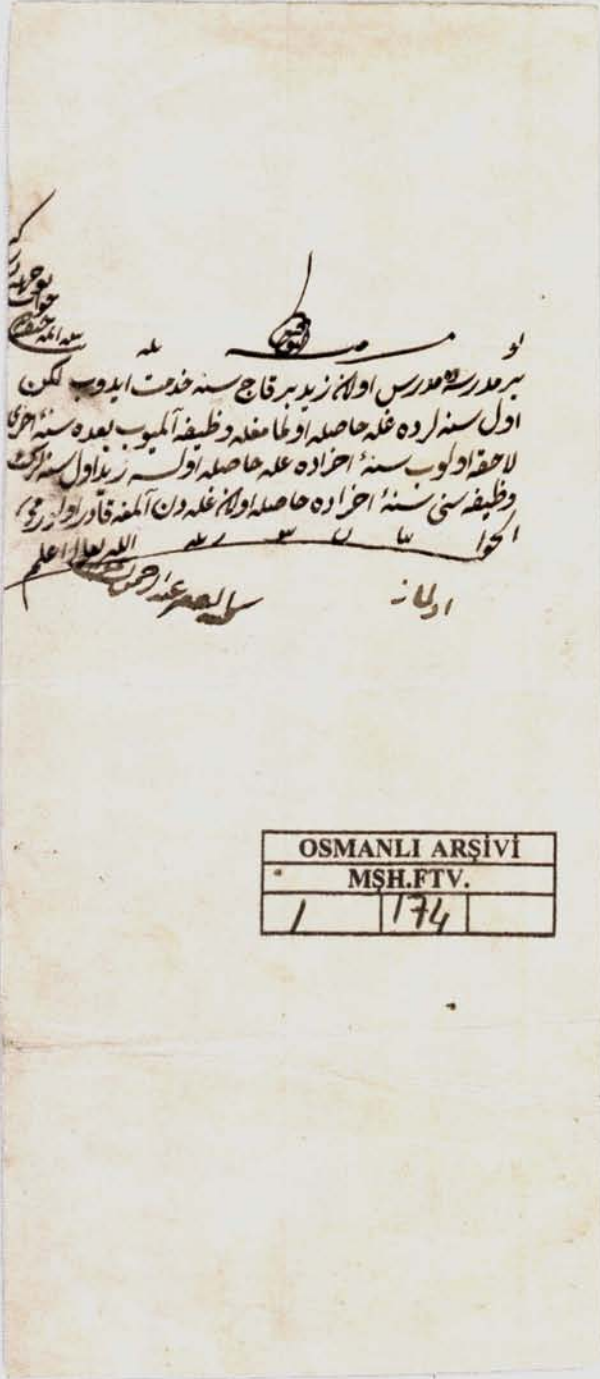 بر مدرسه ده مدرس اولان زيد بر قاچ سنه خدمت ايدوب لكن
اول سنه لرده غله حاصله اولمامغله وظيفه آلميوب بعده سنهٔ اخرى
لاحقه اولوب سنهٔ اخراده غله حاصله اولسه زيد اول سنه لرك
وظيفه سنى سنهٔ اخراده حاصله اولان غله دن آلمغه قادر اولورمى
الجواب الله تعالى اعلم
اولماز
كتبه الفقير عبدالرحمن
OSMANLI ARŞİVİ
MŞH.FTV.
1 174